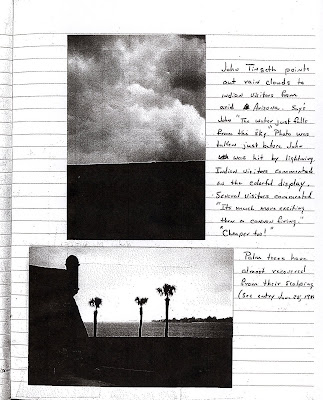 John Tinseth points
out rain clouds to
indian visitors from
arid Arizona. Says
John "The water just falls
from the sky." Photo was
taken just before John
was hit by lightning.
Indian visitors commented
on the colorful display.
Several visitors commented
"Its much more exciting
than a cannon firing."
"Cheaper too!"
Palm trees have
almost recovered
from their scalping
(See entry June 25,